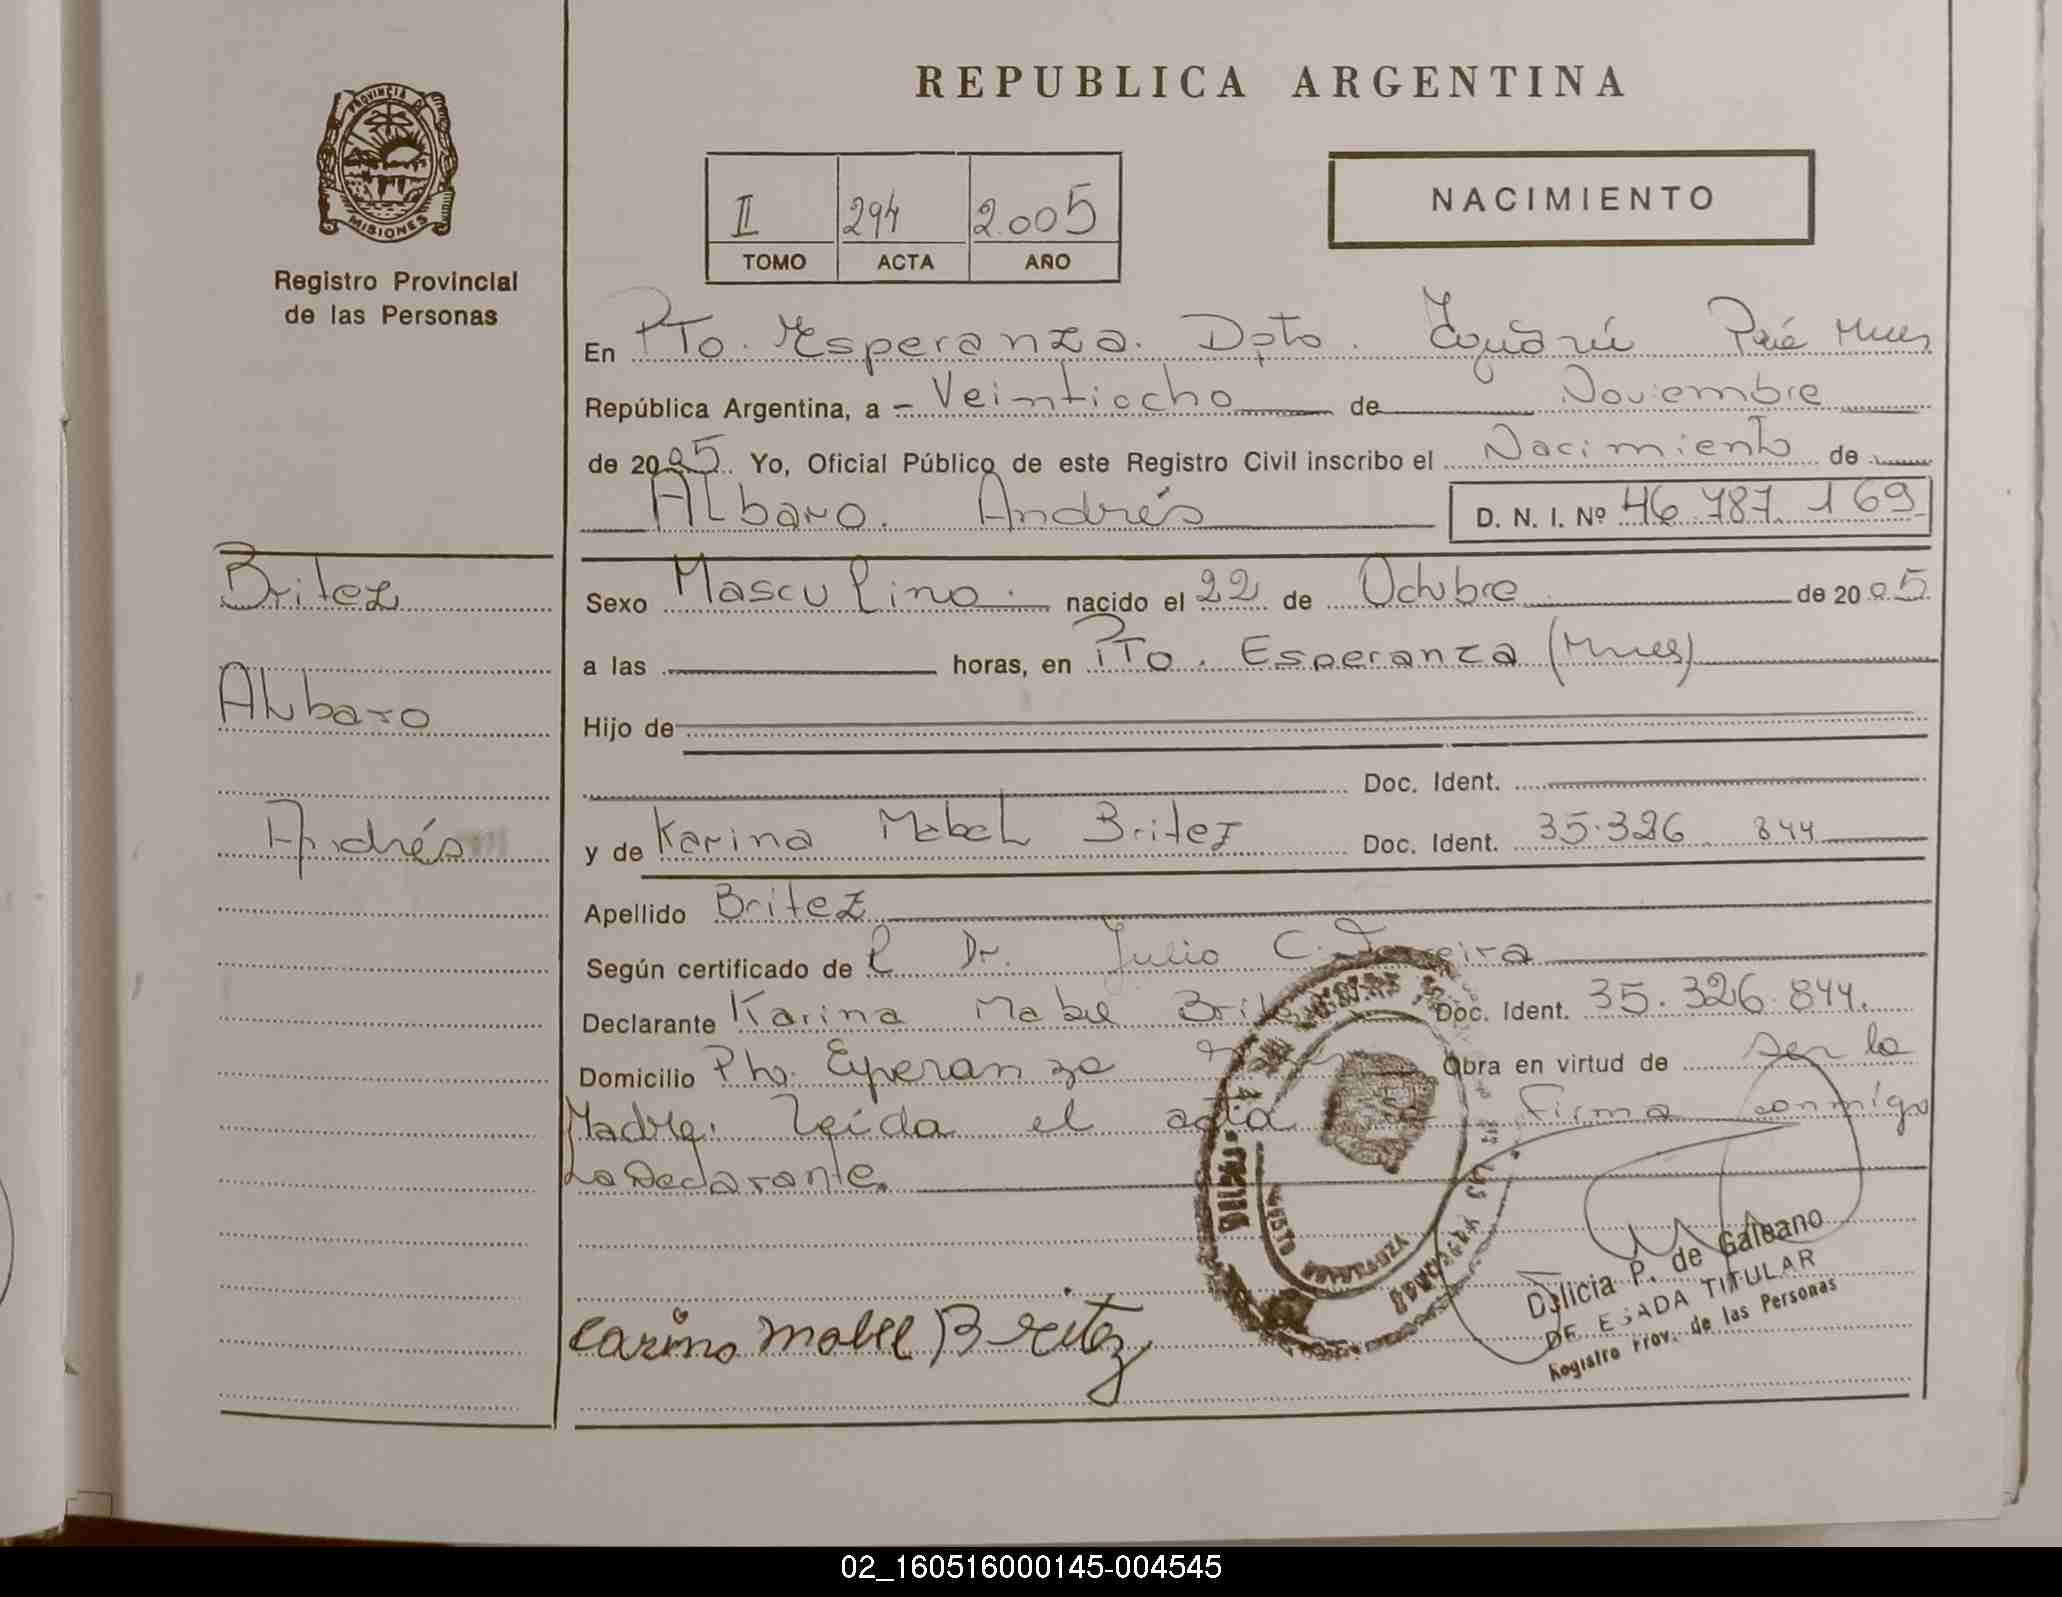 REPUBLICA ARGENTINA
PROVINCIA DE
MISIONES
Registro Provincial
de las Personas
II 294 2.005
TOMO ACTA AÑO
NACIMIENTO
En Pto. Esperanza. Dpto. Iguazú
República Argentina, a - Veintiocho de Noviembre
de 2005. Yo, Oficial Público de este Registro Civil inscribo el Nacimiento de
Albaro. Andrés D. N. I. Nº 46.787.169
Britez
Albaro
Andrés
Sexo Masculino. nacido el 22 de Octubre de 2005
a las horas, en Pto. Esperanza
Hijo de
Doc. Ident.
y de Karina Mabel Britez Doc. Ident. 35.326 844
Apellido Britez
Según certificado de l Dr. Julio C.
Declarante Karina Mabel Britez Doc. Ident. 35.326.844.
Domicilio Pto. Esperanza Obra en virtud de ser la
Madre. Leída el acta firma conmigo
La Declarante.
Carino Mabel Britez
Delicia P. de Galeano
DELEGADA TITULAR
Registro Prov. de las Personas
02_160516000145-004545